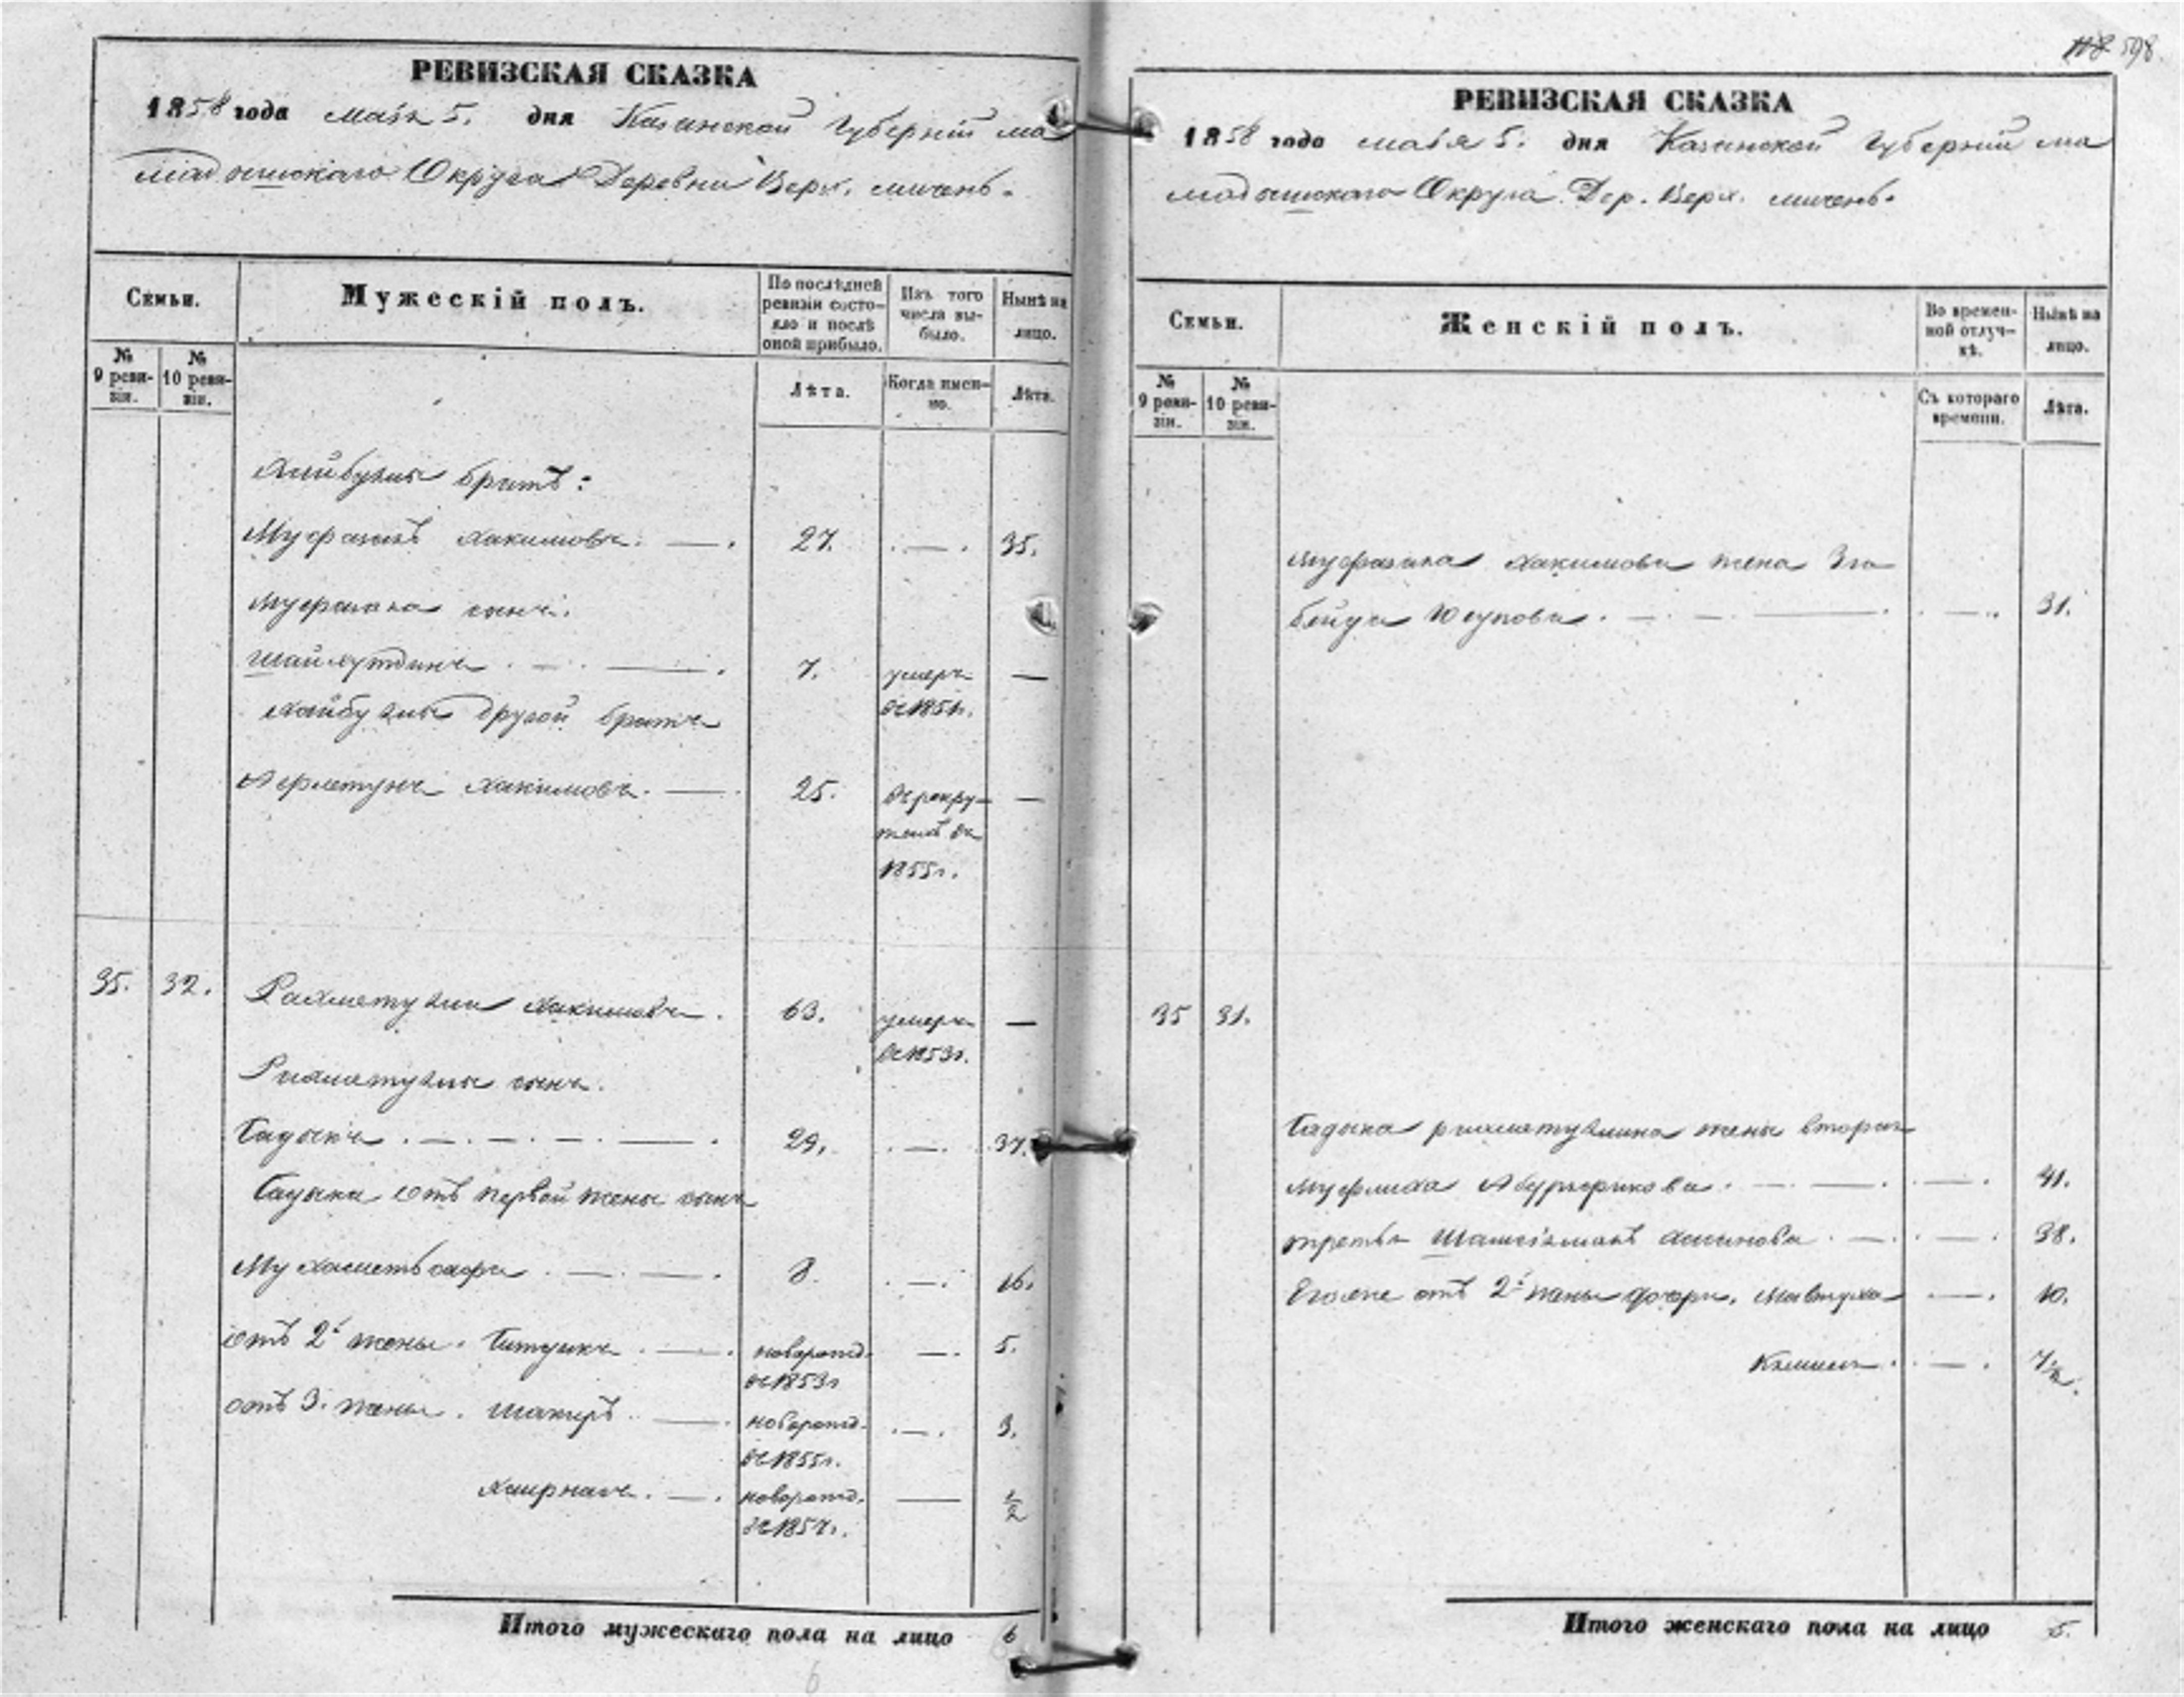 598.
РЕВИЗСКАЯ СКАЗКА
1858 года маія 5. дня Казанской Губерніи Ма
мадышскаго Округа Деревни Верх. мишень.
Семьи.
Мужескій полъ.
По послѣдней ревизіи состояло и послѣ оной прибыло.
Изъ того числа выбыло.
Ныне на лицо.
№ 9 ревизіи.
№ 10 ревизіи.
Лѣта.
Когда именно.
Лѣта.
Хайбуллы братъ:
Мусфазакъ Хакимовъ. — . 27. . — . 35.
сынъ.
7. умеръ —
Хайбуллы другой братъ
въ 1851г.
Хакимовъ. — 25. въ рекру- —
тахъ въ
1855г.
35. 32. Рахметулла Хакимовъ. 63. умеръ —
въ 1853г.
Рахметуллы сынъ.
Садыкъ . — . — . — . 29. . — . 37.
Садыка отъ первой жены сынъ
Мухаметьсафа . — . — . 8. . — . 16.
отъ 2й жены. — . новорожд. — . 5.
въ 1853г
отъ 3. жены. Шакиръ . — . новорожд. . — . 3.
въ 1855г.
— . новорожд. — 1/2
въ 1857г.
Итого мужескаго пола на лицо 6
6
РЕВИЗСКАЯ СКАЗКА
1858 года маія 5. дня Казанской Губерніи Ма
мадышскаго Округа Дер. Верх. мишень.
Семьи.
Женскій полъ.
Во временной отлучкѣ.
Ныне на лицо.
№ 9 ревизіи.
№ 10 ревизіи.
Съ котораго времени.
Лѣта.
Хакимова жена Зю
бейда Юсупова. — . — . — . 31.
35 31.
Садыка рахметуллина жены вторая
Муфлиха — . — . 41.
третья — . — . 38.
Его же отъ 2й жены дочери. — . 10.
— .
Итого женскаго пола на лицо 5.